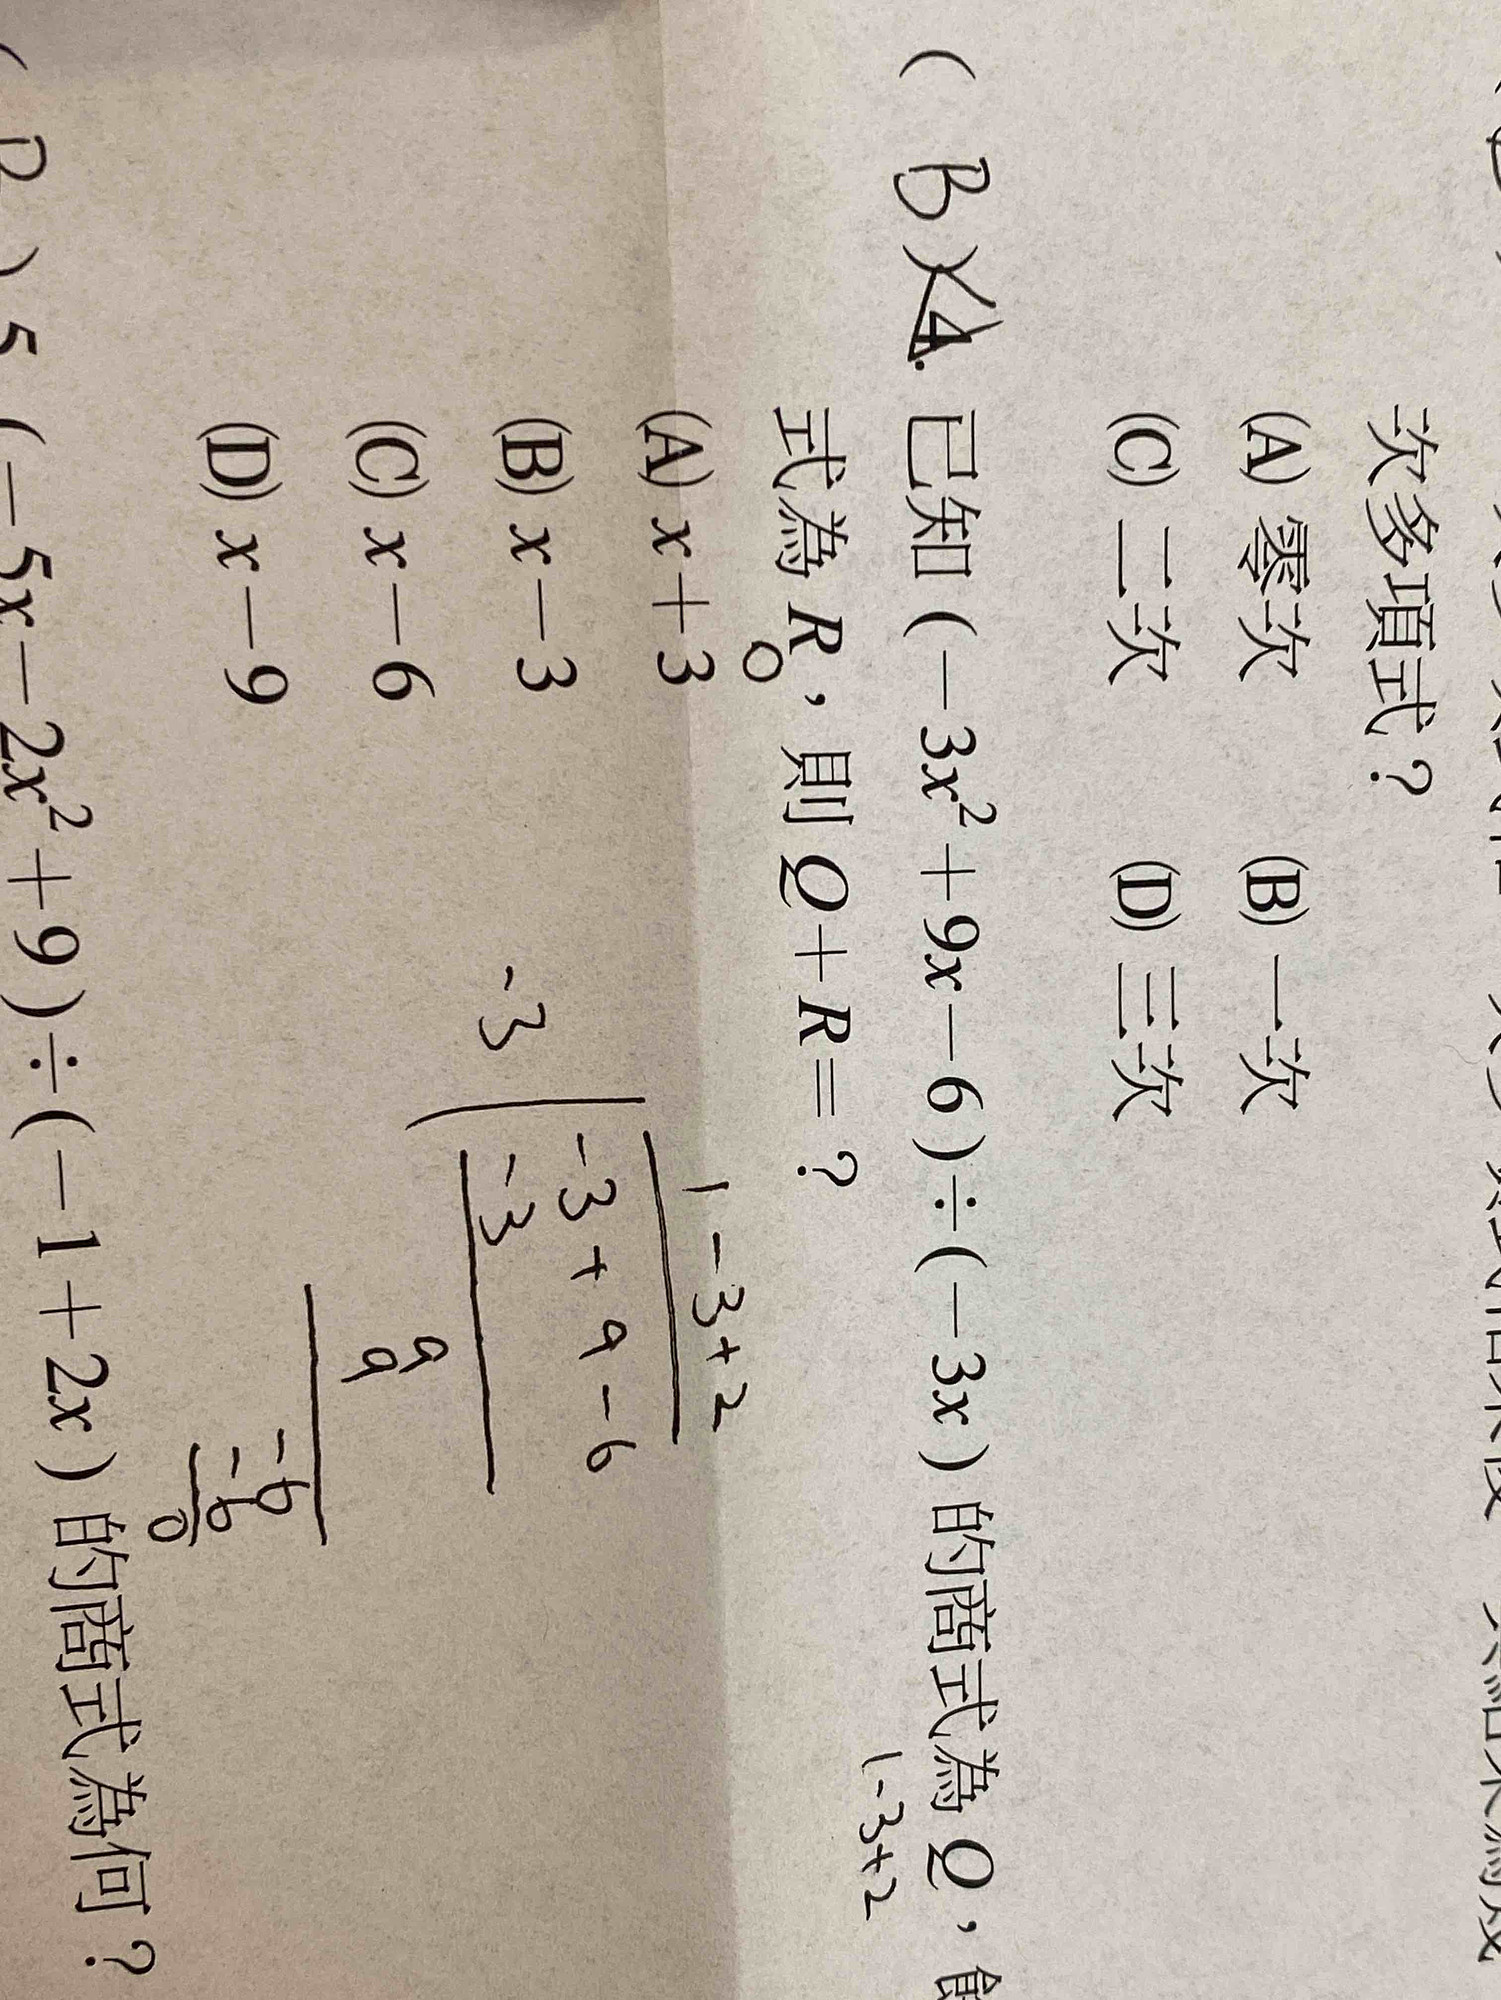 次多項式？
(A) 零次 (B) 一次
(C) 二次 (D) 三次
( B ) 4. 已知 (－3x²＋9x－6)÷(－3x) 的商式為 Q，餘
1-3+2
式為 R，則 Q＋R＝？
0
(A) x＋3
(B) x－3
(C) x－6
(D) x－9
1-3+2
-3 -3+9-6
-3
9
9
-6
-6
0
5 (－5x－2x²＋9)÷(－1＋2x) 的商式為何？